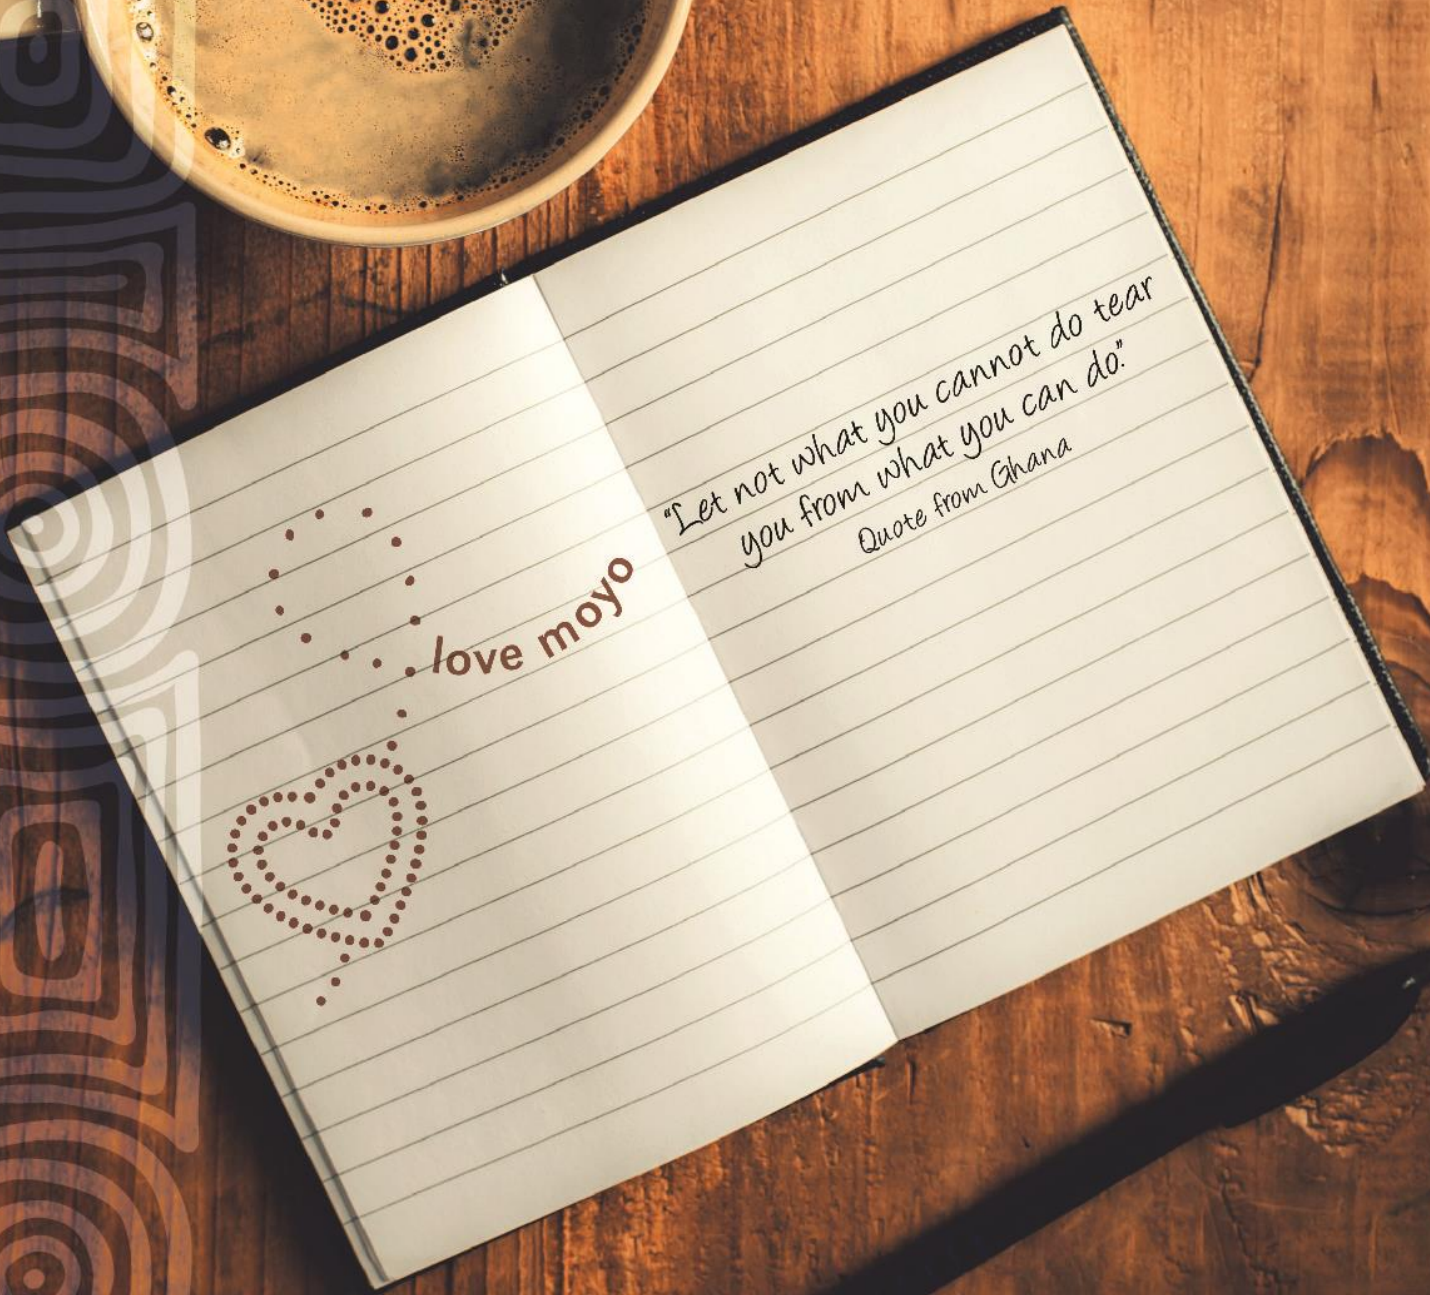 love moyo
"Let not what you cannot do tear
you from what you can do."
Quote from Ghana